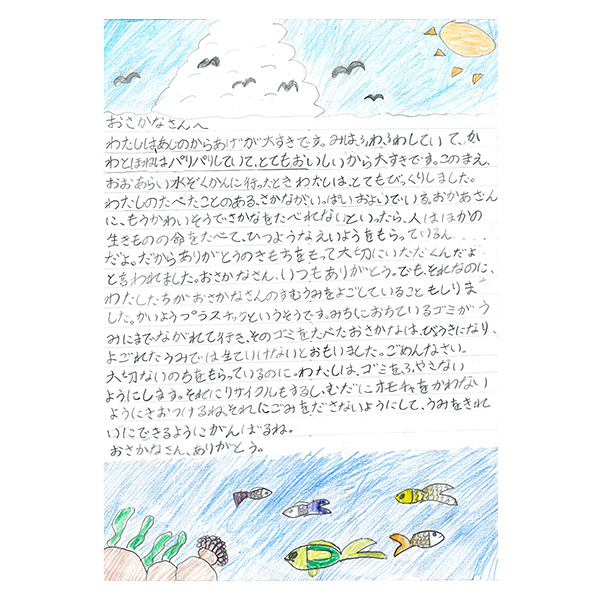 おさかなさんへ
わたしは、あじのからあげが大すきです。みは、ふわふわしていて、か
わとほねはパリパリしていて、とてもおいしいから大すきです。このまえ、
おおあらい水ぞくかんに行ったときわたしは、とてもびっくりしました。
わたしのたべたことのある、さかながいっぱいおよいでいる。おかあさん
に、もうかわいそうでさかなをたべれないといったら、人はほかの
生きものの命をたべて、ひつようなえいようをもらっているん
だよ。だからありがとうのきもちをもって大切にいただくんだよ
と言われました。おさかなさん、いつもありがとう。でも、それなのに、
わたしたちがおさかなさんのすむうみをよごしていることもしりま
した。かいようプラスチックというそうです。みちにおちているゴミがう
みにまでながれて行き、そのゴミをたべたおさかなは、びょうきになり、
よごれたうみでは生きていけないとおもいました。ごめんなさい。
大切ないのちをもらっているのに。わたしは、ゴミをふやさない
ようにします。それにリサイクルもするし、むだにオモチャをかわない
ようにきおつけるね。それにごみをださないようにして、うみをきれ
いにできるようにがんばるね。
おさかなさん、ありがとう。